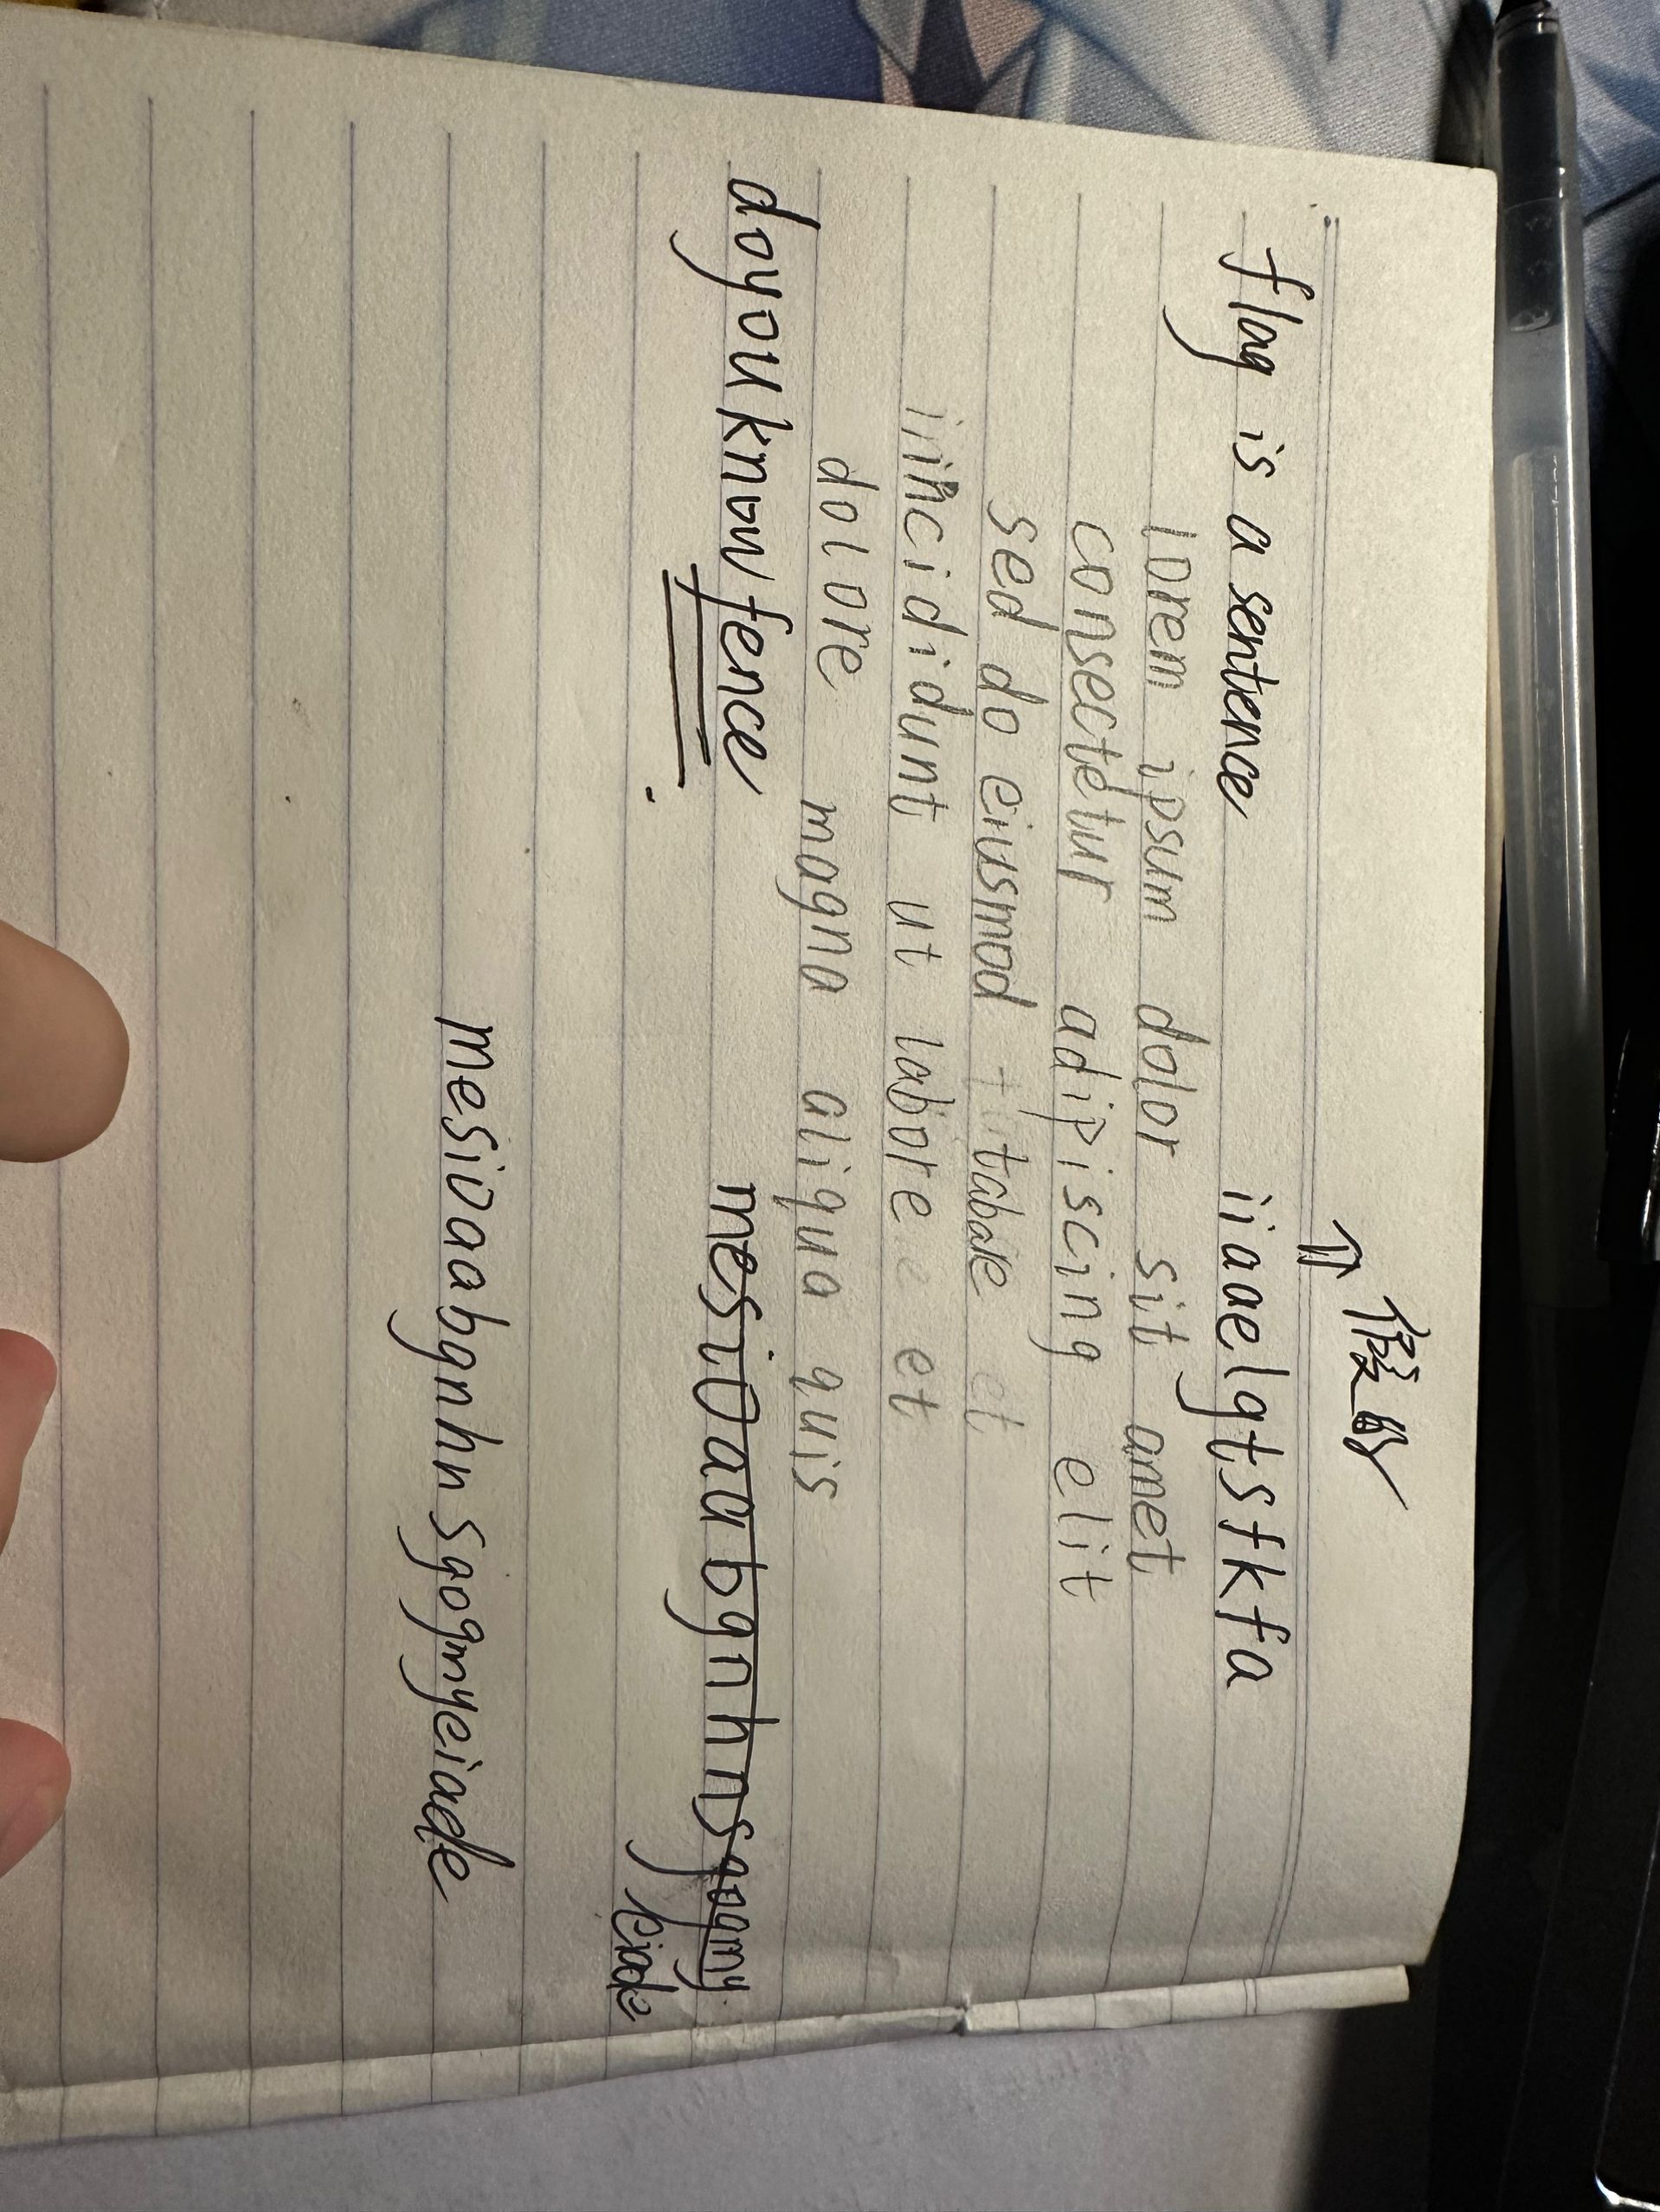 假的
flag is a sentence iiaaelgtsfkfa
lorem ipsum dolor sit amet
consectetur adipiscing elit
sed do eiusmod tabare et
incididunt ut labore et
dolore magna aliqua quis
doyouknowfence mesioaabgnhnsgogmy
eiade
mesioaabgnhnsgogmyeiade